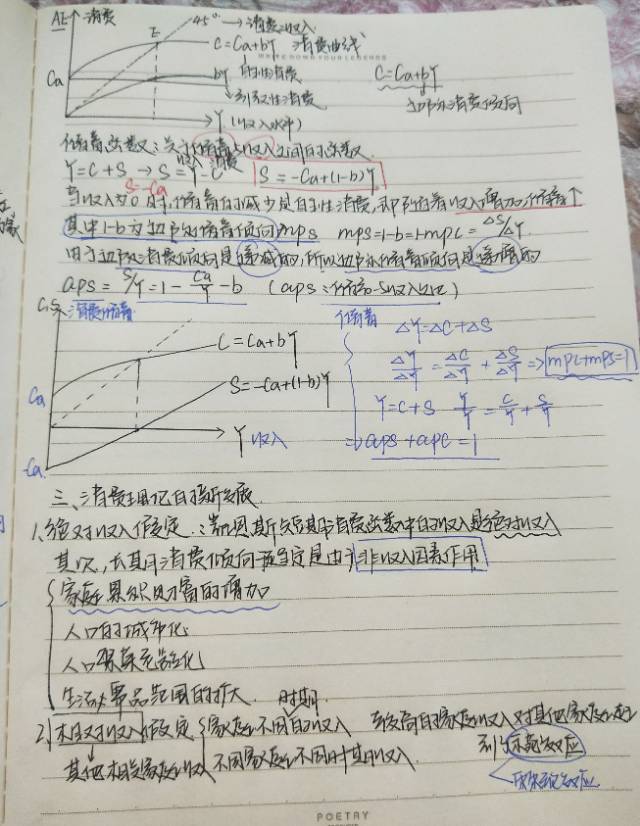 AE 消费
45° → 消费=收入
E
C=Ca+bY 消费曲线
Ca
bY 自由消费
C=Ca+bY
引致性消费
边际消费倾向
Y (收入水平)
储蓄函数:关于储蓄与收入之间的函数
Y=C+S → S=Y-C S=-Ca+(1-b)Y
收入 消费
S=-Ca
当收入为0时,储蓄的减少是自主性消费,即随着收入增加,储蓄↑
其中1-b为边际储蓄倾向mps mps=1-b=1-mpc=ΔS/ΔY
由于边际消费倾向是递减的,所以边际储蓄倾向是递增的
aps=S/Y=1-Ca/Y-b (aps:储蓄与收入之比)
C.S 消费储蓄
C=Ca+bY
Ca
S=-Ca+(1-b)Y
Y 收入
-Ca
储蓄
ΔY=ΔC+ΔS
ΔY/ΔY=ΔC/ΔY+ΔS/ΔY => mpc+mps=1
Y=C+S Y/Y=C/Y+S/Y
=> aps+apc=1
三、消费理论的新发展
1、绝对收入假定:凯恩斯短期消费函数中的收入是绝对收入
其次,长期消费倾向稳定是由于非收入因素作用
家庭累积财富的增加
人口的城市化
人口年龄老龄化
生活必需品范围的扩大
时期
2、相对收入假定 家庭不同的收入 较高的家庭收入对其他家庭起
到示范效应
其他相关家庭收入 不同家庭不同时期收入